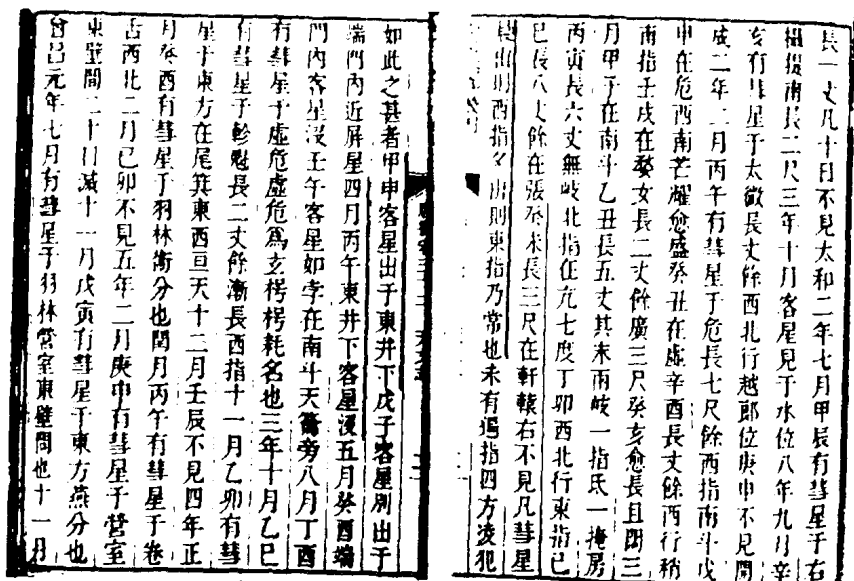 長一丈凡十日不見太和二年七月甲辰有彗星于右
攝提南長二尺三年十月客星見于水位八年九月辛
亥有彗星于太微長丈餘西北行越郎位庚申不見開
成二年二月丙午有彗星于危長七尺餘西指南斗戊
申在危西南芒耀愈盛癸丑在虛辛酉長丈餘西行稍
南指壬戌在婺女長二丈餘廣三尺癸亥愈長且闊三
月甲子在南斗乙丑長五丈其末兩岐一指氐一掩房
丙寅長六丈無岐北指在亢七度丁卯西北行東指己
巳長八丈餘在張癸未長三尺在軒轅右不見凡彗星
晨出則西指夕出則東指乃常也未有遍指四方凌犯
如此之甚者甲申客星出于東井下戊子客星別出于
端門內近屏星四月丙午東井下客星沒五月癸酉端
門內客星沒壬午客星如孛在南斗天籥旁八月丁酉
有彗星于虛危虛危為玄枵枵耗名也三年十月乙巳
有彗星于軫魁長二丈餘漸長西指十一月乙卯有彗
星于東方在尾箕東西亘天十二月壬辰不見四年正
月癸酉有彗星于羽林衛分也閏月丙午有彗星于卷
舌西北二月己卯不見五年二月庚申有彗星于營室
東壁間二十日滅十一月戊寅有彗星于東方燕分也
會昌元年七月有彗星于羽林營室東壁間也十一月